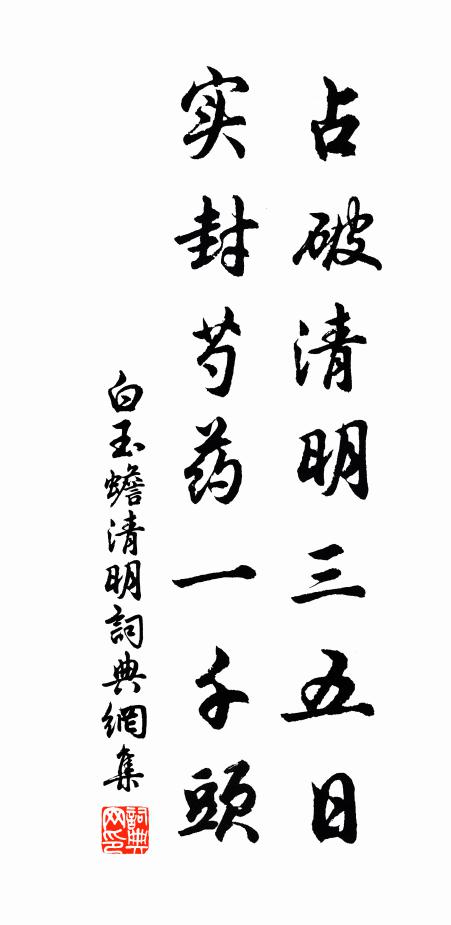 占破清明三五日
实封芍药一千頭
白玉蟾清明詞典網集
詞典网印